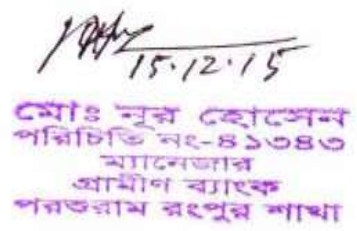 15.12.15
মোঃ নূর হোসেন
পরিচিতি নং-৪১৩৪৩
ম্যানেজার
গ্রামীণ ব্যাংক
পরশুরাম রংপুর শাখা